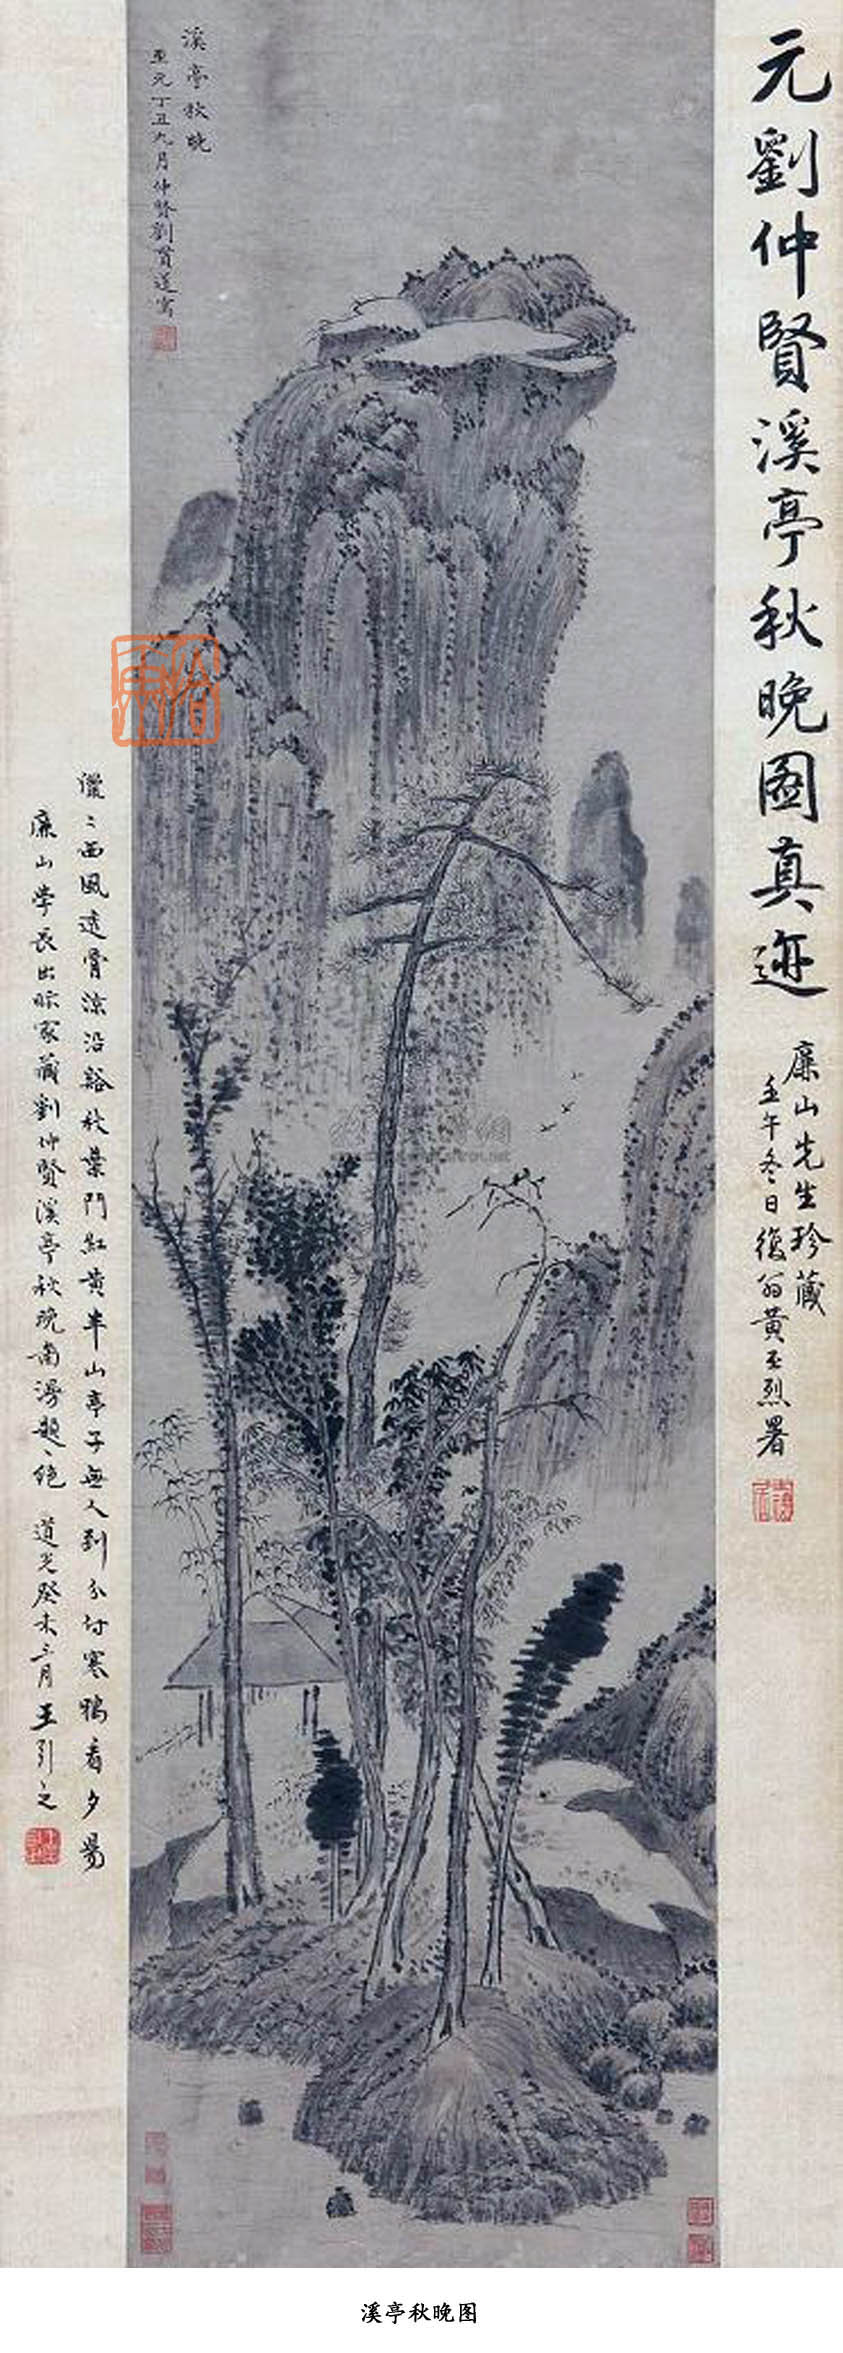 元劉仲賢溪亭秋晚圖真迹
廉山先生珍藏
壬午冬日復翁黃丕烈署
溪亭秋晚
至元丁丑九月仲賢劉貫道寫
儠〻西風透骨涼沿谿秋葉鬥紅黃半山亭子無人到分付寒鴉看夕陽
廉山學長出眎家藏劉仲賢溪亭秋晚圖漫題一絕 道光癸未三月 王引之
溪亭秋晚图